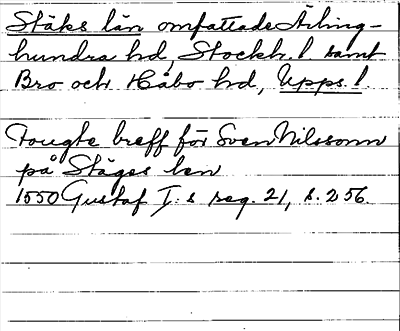 Stäks län omfattade Ärling-
hundra hd, Stockh. l. samt
Bro och Håbo hd, Upps. l.
Fougte breff för Sven Nilssonn
på Stäges len
1550 Gustaf I:s reg. 21, s. 256.